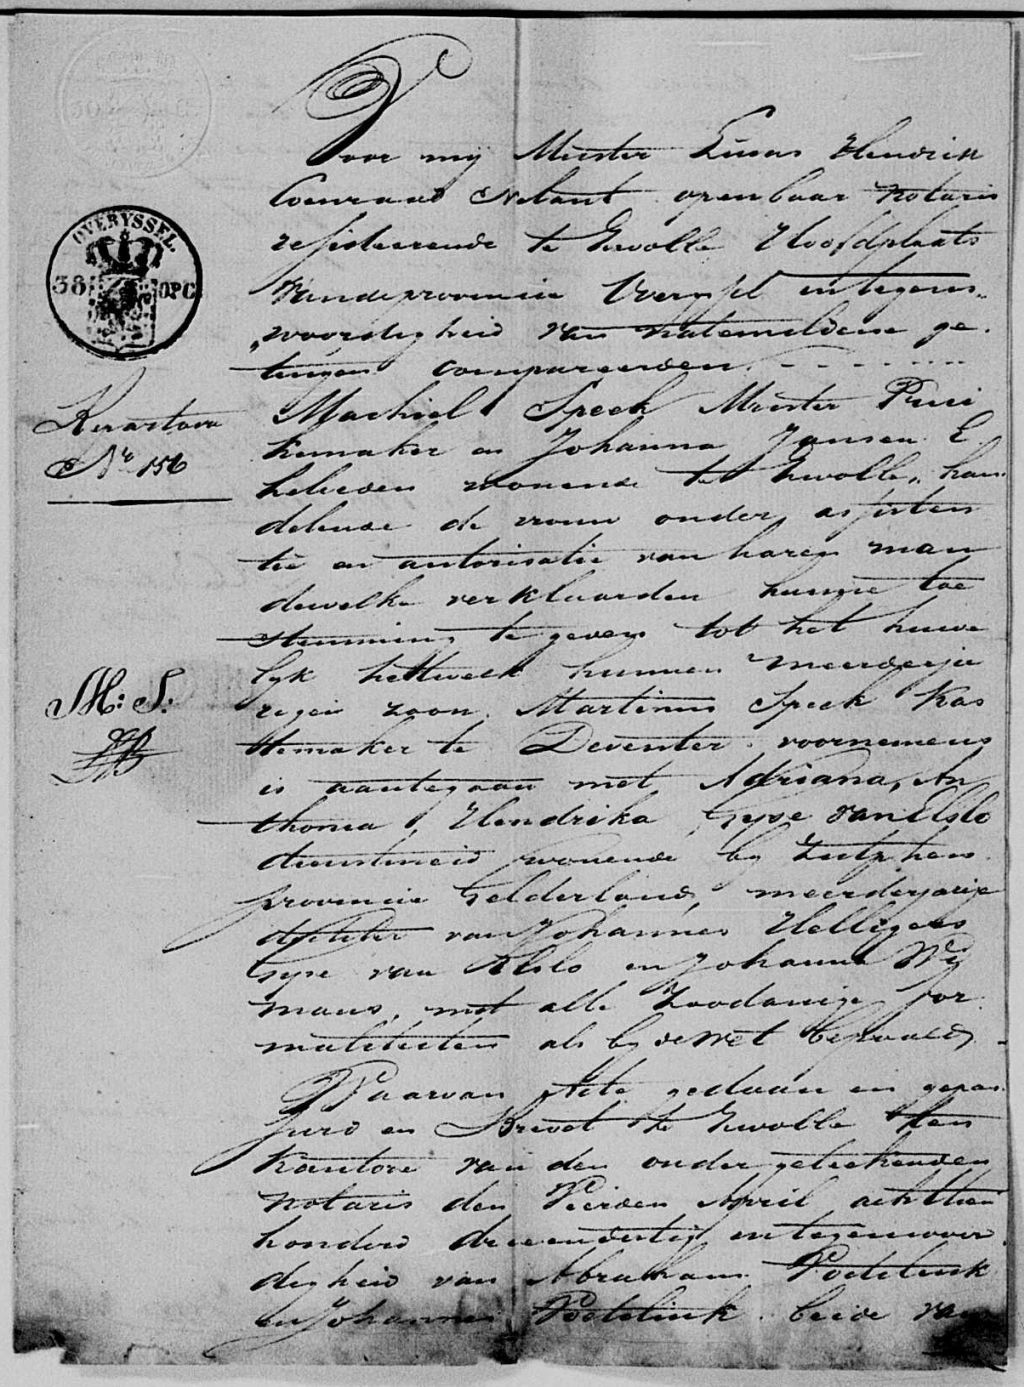 OVERYSSEL
38 OPC
Voor my Meester Lucas Hendrik
Coenraad Nilant openbaar Notaris
resideerende te Zwolle Hoofdplaats
van de provincie Overyssel en tegens„
„woordigheid van natemeldene ge„
tuigen compareerden.
Repertoire
No 156
Machiel Speek Meester Prui
kemaker en Johanna Jansen E
helieden wonende te Zwolle, han
delende de vrouw onder assisten
tie en autorisatie van haren man
dewelke verklaarden hunne toe
stemming te geven tot het huwe
lyk hetwelk hunnen meerderja
rigen zoon Martinus Speek Kas
temaker te Deventer voornemens
is aantegaan met Adriana, An
thonia, Hendrika, Gyse van Elslo
dienstmeid wonende by Zutphen
provincie Gelderland, meerderjarige
dochter van Johannes Helligers
Gyse van Elslo en Johanna Wy
mans, met alle zoodanige for
maliteiten als by de wet bepaald.
M: S:
Waarvan Akte gedaan en gepas
seerd en Brevet te Zwolle ten
kantore van den ondergeteekenden
notaris den Vierden April achttien
honderd drieendertig en tegenwoor
digheid van Abraham
en Johannes beide van